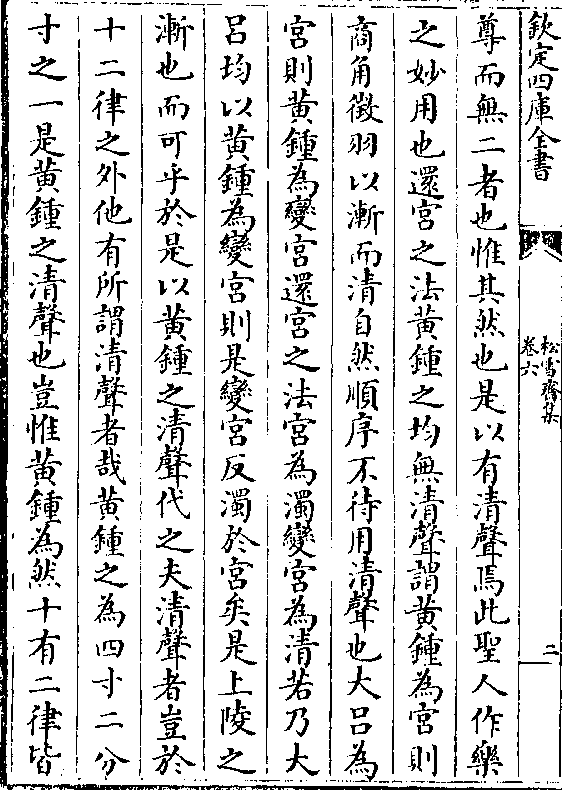 欽定四庫全書
松雪齋集
卷六
二
尊而無二者也惟其然也是以有清聲焉此聖人作樂
之妙用也還宮之法黃鍾之均無清聲謂黃鍾為宮則
商角徵羽以漸而清自然順序不待用清聲也大呂為
宮則黃鍾為變宮還宮之法宮為濁變宮為清若乃大
呂均以黃鍾為變宮則是變宮反濁於宮矣是上陵之
漸也而可乎於是以黃鍾之清聲代之夫清聲者豈於
十二律之外他有所謂清聲者哉黃鍾之為四寸二分
寸之一是黃鍾之清聲也豈惟黃鍾為然十有二律皆